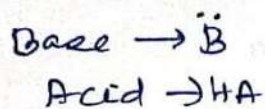 Base → B̈
Acid → HA